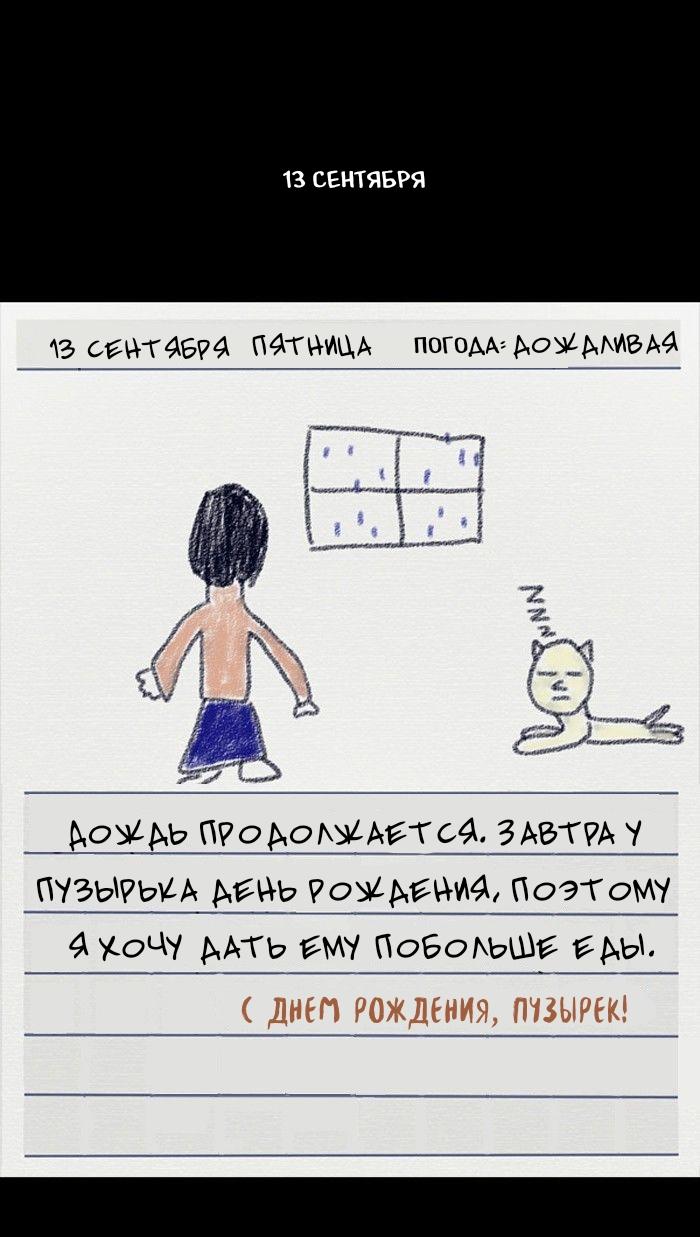 13 СЕНТЯБРЯ
13 СЕНТЯБРЯ ПЯТНИЦА ПОГОДА: ДОЖДЛИВАЯ
Z
Z
Z
ДОЖДЬ ПРОДОЛЖАЕТСЯ. ЗАВТРА У
ПУЗЫРЬКА ДЕНЬ РОЖДЕНИЯ, ПОЭТОМУ
Я ХОЧУ ДАТЬ ЕМУ ПОБОЛЬШЕ ЕДЫ.
С ДНЕМ РОЖДЕНИЯ, ПУЗЫРЕК!